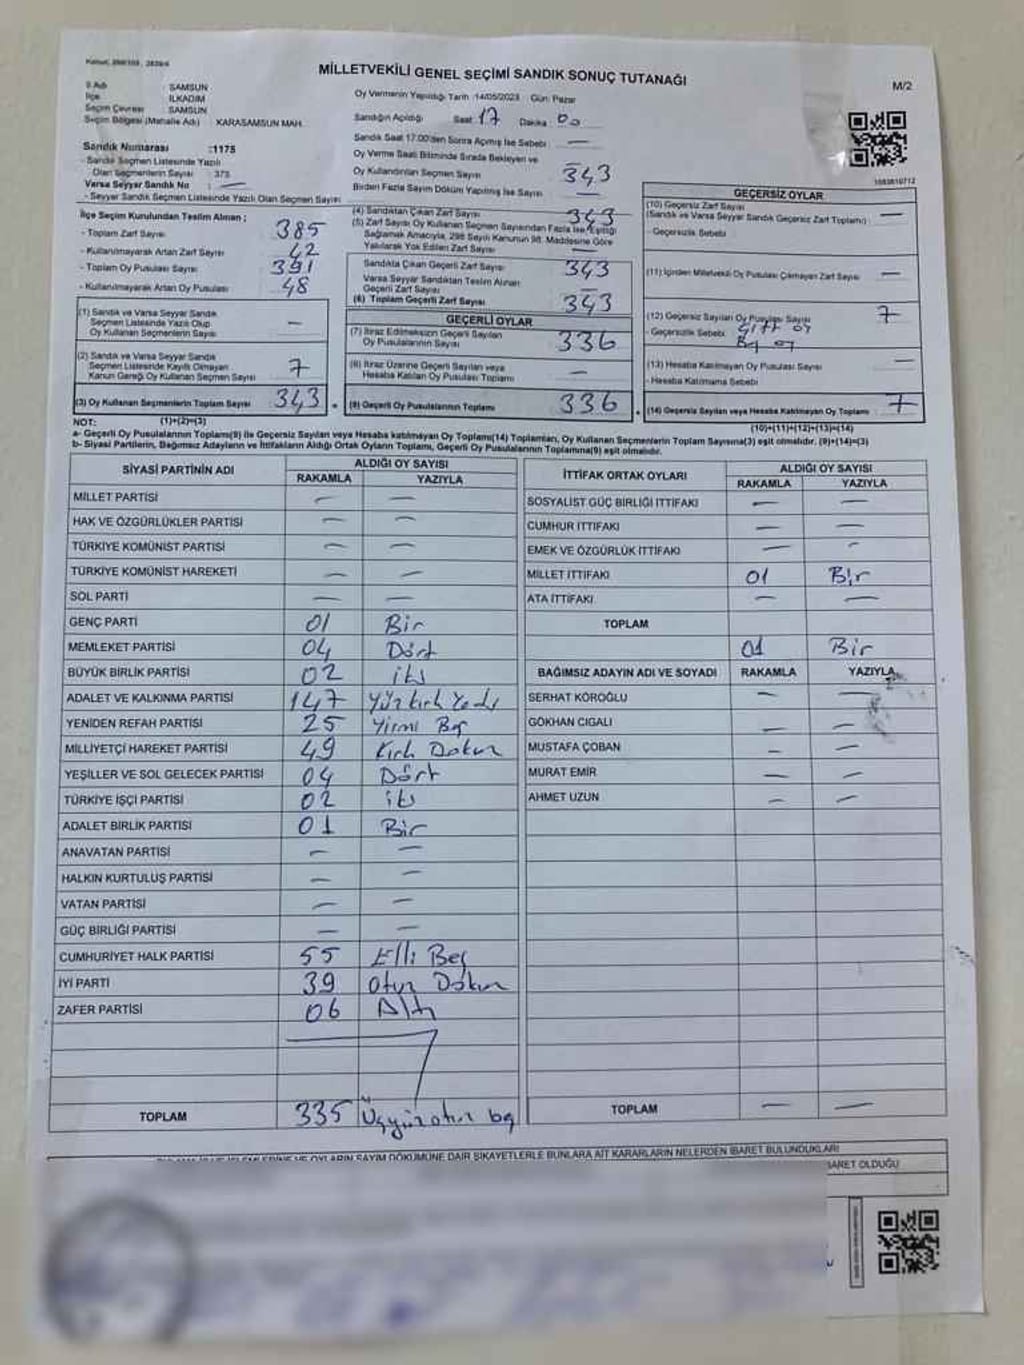 MİLLETVEKİLİ GENEL SEÇİMİ SANDIK SONUÇ TUTANAĞI
M/2
İl Adı SAMSUN
İlçe İLKADIM
Seçim Çevresi SAMSUN
Seçim Bölgesi (Mahalle Adı) : KARASAMSUN MAH.
Sandık Numarası :1175
- Sandık Seçmen Listesinde Yazılı
Olan Seçmenlerin Sayısı : 375
Varsa Seyyar Sandık No : —
- Seyyar Sandık Seçmen Listesinde Yazılı Olan Seçmen Sayısı
Oy Vermenin Yapıldığı Tarih :14/05/2023 Gün: Pazar
Sandığın Açıldığı Saat 17 Dakika 00
Sandık Saat 17.00'den Sonra Açılmış İse Sebebi : —
Oy Verme Saati Bitiminde Sırada Bekleyen ve
Oy Kullandırılan Seçmen Sayısı 343
Birden Fazla Sayım Döküm Yapılmış İse Sayısı —
İlçe Seçim Kurulundan Teslim Alınan ;
- Toplam Zarf Sayısı 385
- Kullanılmayarak Artan Zarf Sayısı 42
- Toplam Oy Pusulası Sayısı 391
- Kullanılmayarak Artan Oy Pusulası 48
(1) Sandık ve Varsa Seyyar Sandık
Seçmen Listesinde Yazılı Olup
Oy Kullanan Seçmenlerin Sayısı —
(2) Sandık ve Varsa Seyyar Sandık
Seçmen Listesinde Kayıtlı Olmayan
Kanun Gereği Oy Kullanan Seçmen Sayısı 7
(3) Oy Kullanan Seçmenlerin Toplam Sayısı 343
(1)+(2)=(3)
(4) Sandıktan Çıkan Zarf Sayısı 343
(5) Zarf Sayısı Oy Kullanan Seçmen Sayısından Fazla İse, Eşitliği
Sağlamak Amacıyla, 298 Sayılı Kanunun 98. Maddesine Göre
Yakılarak Yok Edilen Zarf Sayısı —
Sandıkta Çıkan Geçerli Zarf Sayısı 343
Varsa Seyyar Sandıktan Teslim Alınan
Geçerli Zarf Sayısı —
(6) Toplam Geçerli Zarf Sayısı 343
GEÇERLİ OYLAR
(7) İtiraz Edilmeksizin Geçerli Sayılan
Oy Pusulalarının Sayısı 336
(8) İtiraz Üzerine Geçerli Sayılan veya
Hesaba Katılan Oy Pusulası Toplamı —
(9) Geçerli Oy Pusulalarının Toplamı 336
1083810712
GEÇERSİZ OYLAR
(10) Geçersiz Zarf Sayısı
(Sandık ve Varsa Seyyar Sandık Geçersiz Zarf Toplamı) : —
- Geçersizlik Sebebi
(11) İçinden Milletvekili Oy Pusulası Çıkmayan Zarf Sayısı —
(12) Geçersiz Sayılan Oy Pusulası Sayısı 7
- Geçersizlik Sebebi : Çift oy
Boş oy
(13) Hesaba Katılmayan Oy Pusulası Sayısı —
- Hesaba Katılmama Sebebi
(14) Geçersiz Sayılan veya Hesaba Katılmayan Oy Toplamı 7
(10)+(11)+(12)+(13)=(14)
NOT:
a- Geçerli Oy Pusulalarının Toplamı(9) ile Geçersiz Sayılan veya Hesaba katılmayan Oy Toplamı(14) Toplamları, Oy Kullanan Seçmenlerin Toplam Sayısına(3) eşit olmalıdır. (9)+(14)=(3)
b- Siyasi Partilerin, Bağımsız Adayların ve İttifakların Aldığı Ortak Oyların Toplamı, Geçerli Oy Pusulalarının Toplamına(9) eşit olmalıdır.
SİYASİ PARTİNİN ADI ALDIĞI OY SAYISI
RAKAMLA YAZIYLA
MİLLET PARTİSİ — —
HAK VE ÖZGÜRLÜKLER PARTİSİ — —
TÜRKİYE KOMÜNİST PARTİSİ — —
TÜRKİYE KOMÜNİST HAREKETİ — —
SOL PARTİ — —
GENÇ PARTİ 01 Bir
MEMLEKET PARTİSİ 04 Dört
BÜYÜK BİRLİK PARTİSİ 02 iki
ADALET VE KALKINMA PARTİSİ 147 Yüz kırk Yedi
YENİDEN REFAH PARTİSİ 25 Yirmi Beş
MİLLİYETÇİ HAREKET PARTİSİ 49 Kırk Dokuz
YEŞİLLER VE SOL GELECEK PARTİSİ 04 Dört
TÜRKİYE İŞÇİ PARTİSİ 02 iki
ADALET BİRLİK PARTİSİ 01 Bir
ANAVATAN PARTİSİ — —
HALKIN KURTULUŞ PARTİSİ — —
VATAN PARTİSİ — —
GÜÇ BİRLİĞİ PARTİSİ — —
CUMHURİYET HALK PARTİSİ 55 Elli Beş
İYİ PARTİ 39 Otuz Dokuz
ZAFER PARTİSİ 06 Altı
TOPLAM 335 Üçyüzotuz beş
İTTİFAK ORTAK OYLARI ALDIĞI OY SAYISI
RAKAMLA YAZIYLA
SOSYALİST GÜÇ BİRLİĞİ İTTİFAKI — —
CUMHUR İTTİFAKI — —
EMEK VE ÖZGÜRLÜK İTTİFAKI — —
MİLLET İTTİFAKI 01 Bir
ATA İTTİFAKI — —
TOPLAM
01 Bir
BAĞIMSIZ ADAYIN ADI VE SOYADI RAKAMLA YAZIYLA
SERHAT KÖROĞLU — —
GÖKHAN CIGALI —
MUSTAFA ÇOBAN — —
MURAT EMİR — —
AHMET UZUN — —
TOPLAM — —
OYLARIN SAYIM DÖKÜMÜNE DAİR ŞİKAYETLERLE BUNLARA AİT KARARLARIN NELERDEN İBARET BULUNDUKLARI
İBARET OLDUĞU